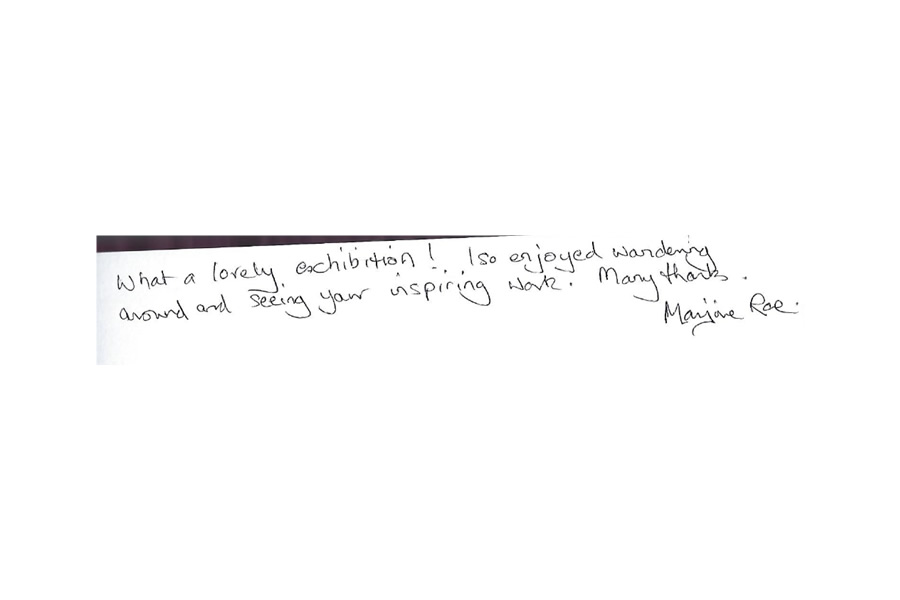 What a lovely exhibition! I so enjoyed wandering
around and seeing your inspiring work. Many thanks.
Marjorie Rae.